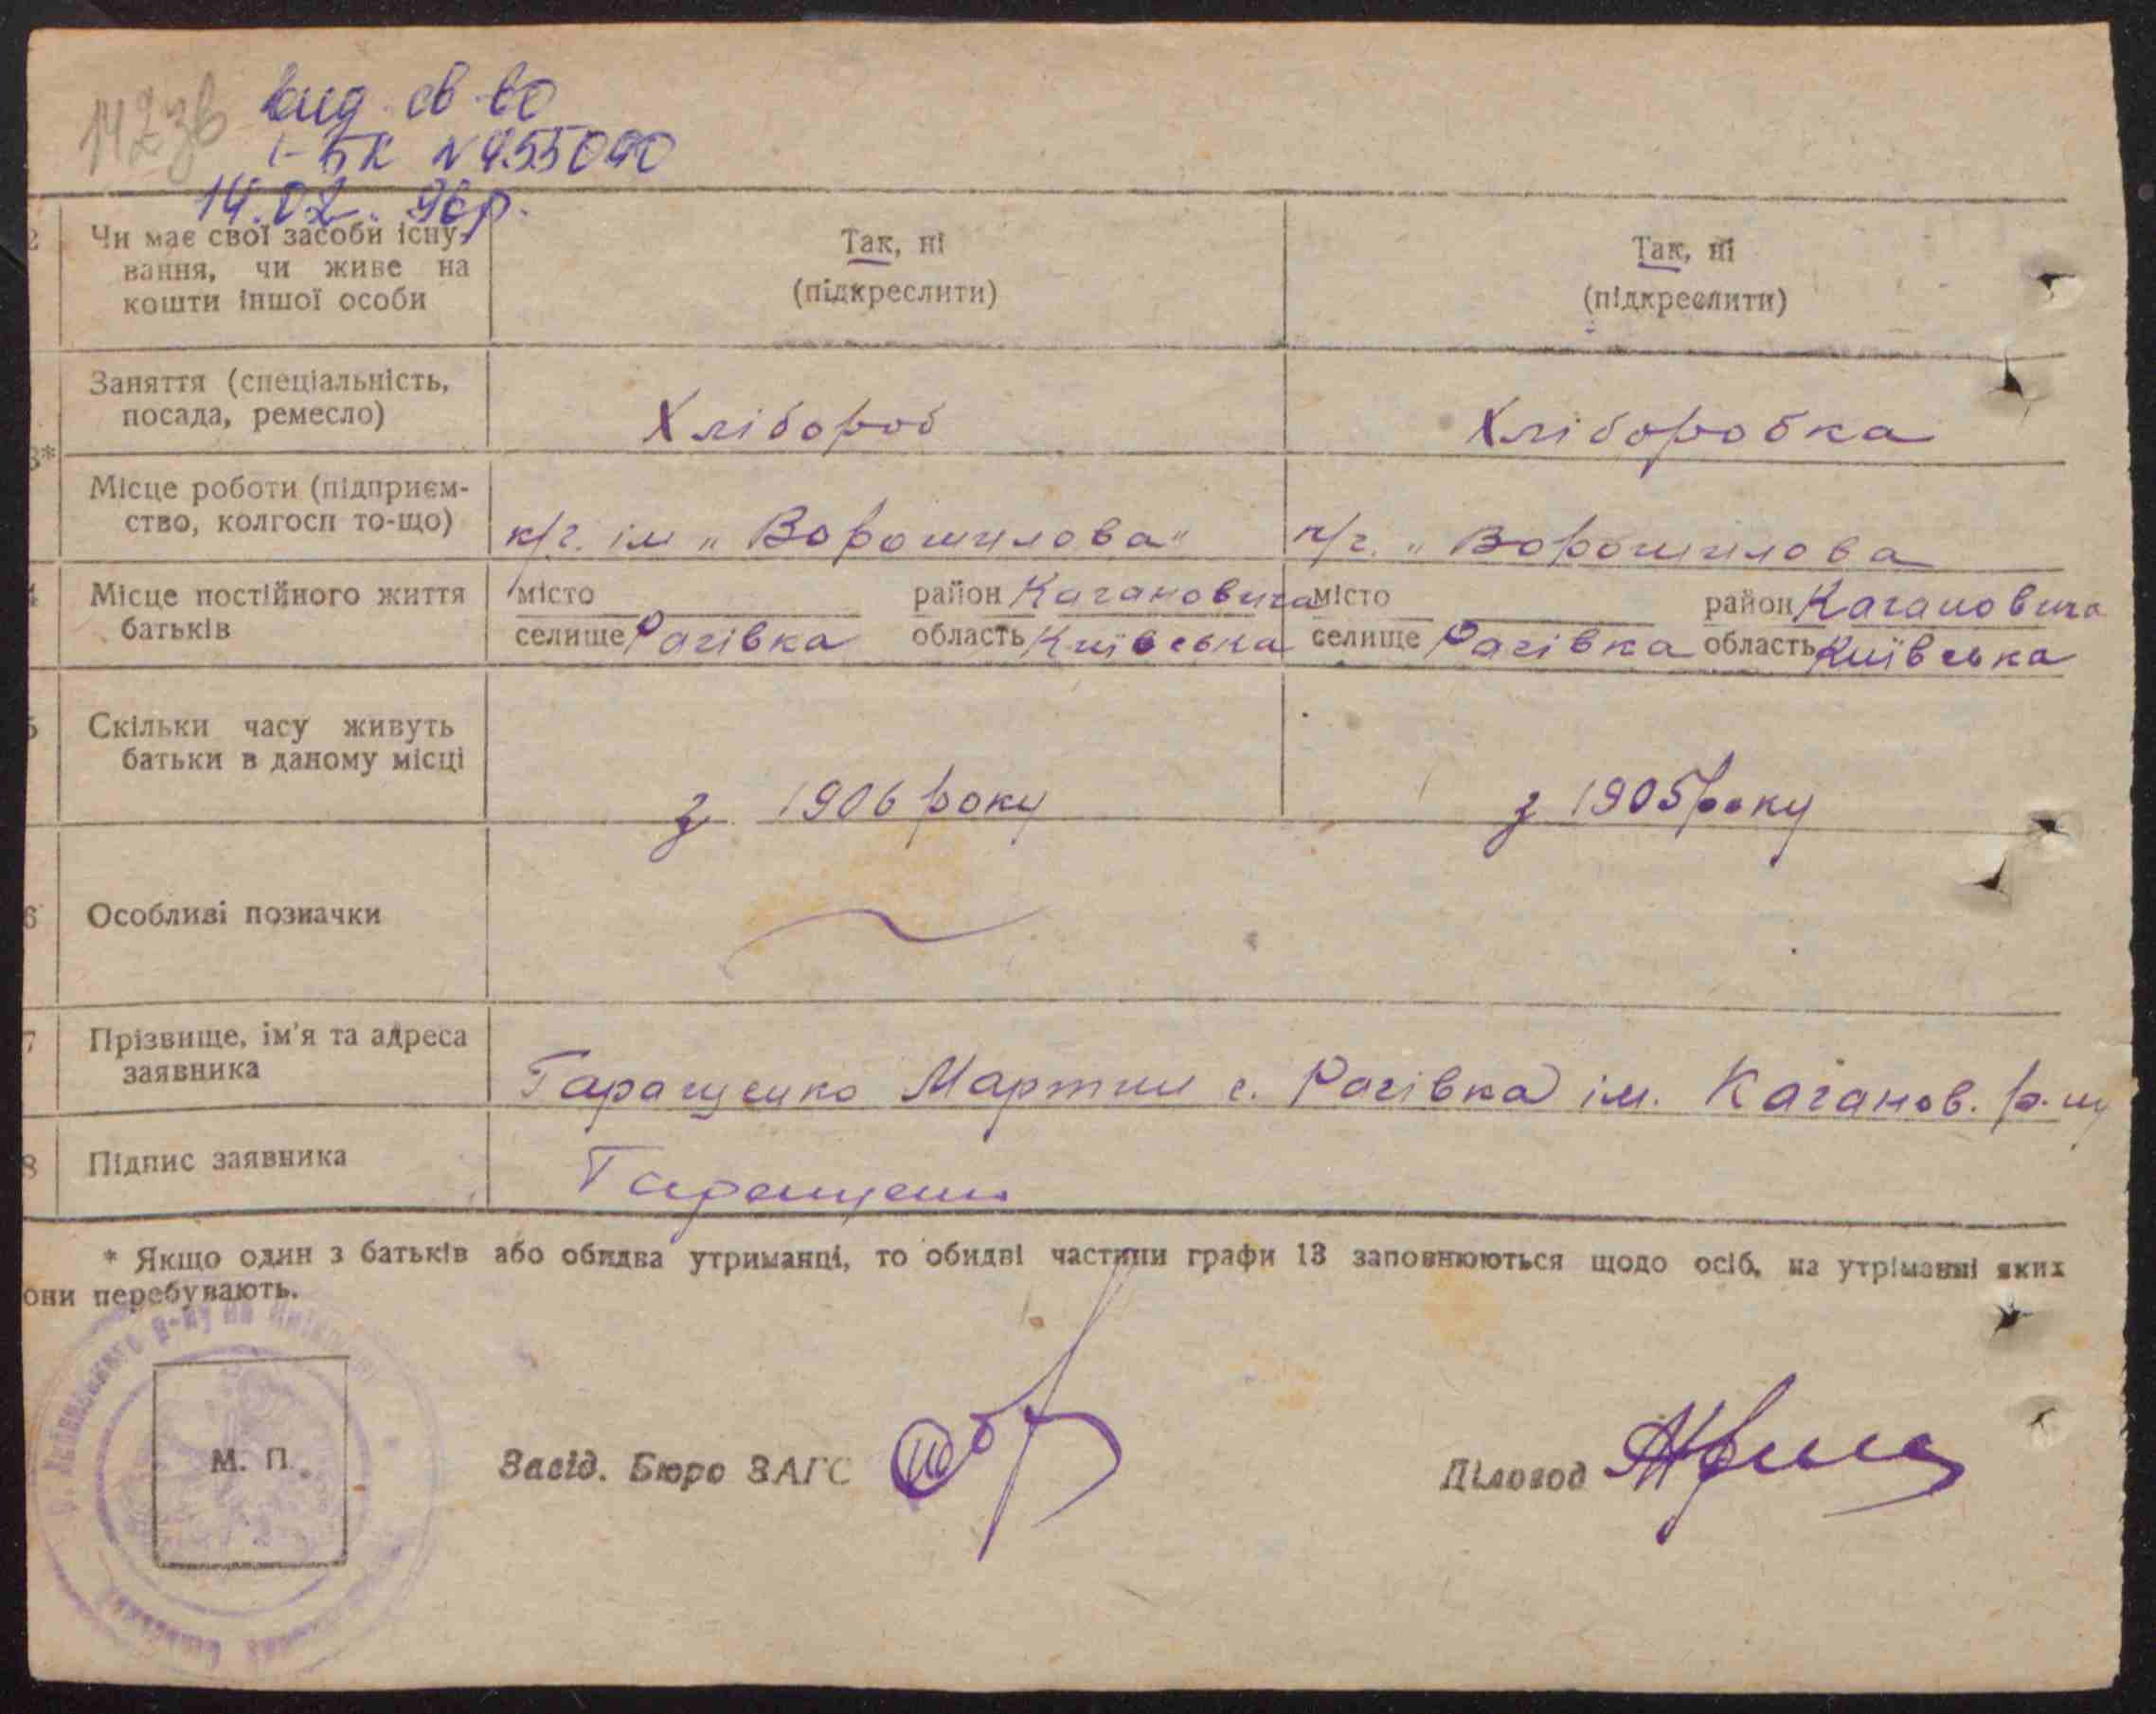 вид. св-во
I-БК №455090
14.02. 96р.
2 Чи має свої засоби існу-
вання, чи живе на
кошти іншої особи
Так, ні
(підкреслити)
Так, ні
(підкреслити)
3*
Заняття (спеціальність,
посада, ремесло)
Хлібороб
Хлiборобка
Місце роботи (підприєм-
ство, колгосп то-що)
к/г. ім „Ворошилова"
к/г. „Ворошилова
4 Місце постійного життя
батьків
місто район Кагановича
селище Рагівка область Київська
місто район Кагановича
селище Рагівка область Київська
5 Скільки часу живуть
батьки в даному місці
з 1906 року
з 1905 року
6 Особливі позначки
7 Прізвище, ім'я та адреса
заявника
Гаращенко Мартин с. Рагівка ім. Каганов. р-ну
8 Підпис заявника
Гаращенко
* Якщо один з батьків або обидва утриманці, то обидві частини графи 13 заповнюються щодо осіб, на утріманні яких
они перебувають.
М. П.
Завід. Бюро ЗАГС
Діловод